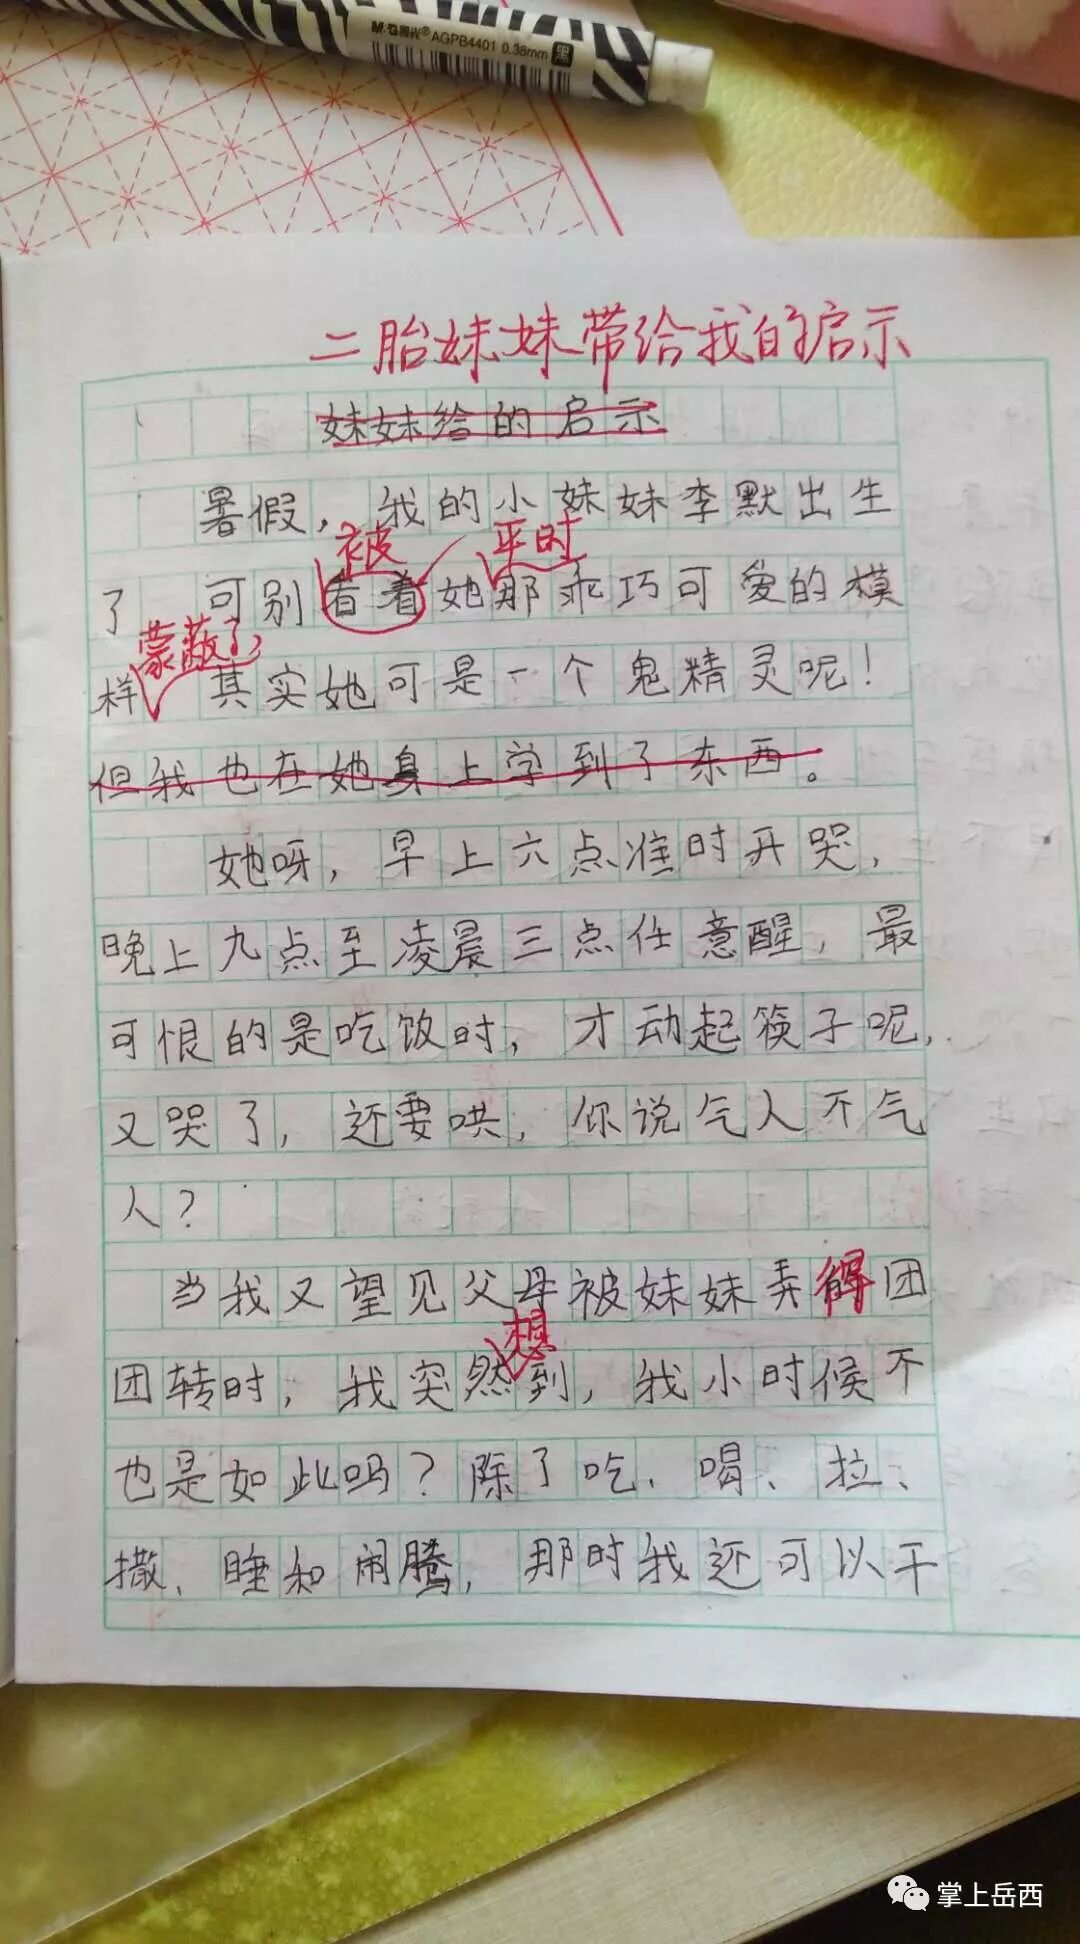 M&G晨光 AGPB4401 0.38mm 黑
二胎妹妹带给我的启示
妹妹给的启示
暑假，我的小妹妹李默出生
被 平时
了 可别看着她那乖巧可爱的模
蒙蔽了，
样 其实她可是一个鬼精灵呢！
但我也在她身上学到了东西。
她呀，早上六点准时开哭，
晚上九点至凌晨三点任意醒，最
可恨的是吃饭时，才动起筷子呢，
又哭了，还要哄，你说气人不气
人？
当我又望见父母被妹妹弄得团
想
团转时，我突然到，我小时候不
也是如此吗？除了吃、喝、拉、
撒、睡和闹腾，那时我还可以干
掌上岳西